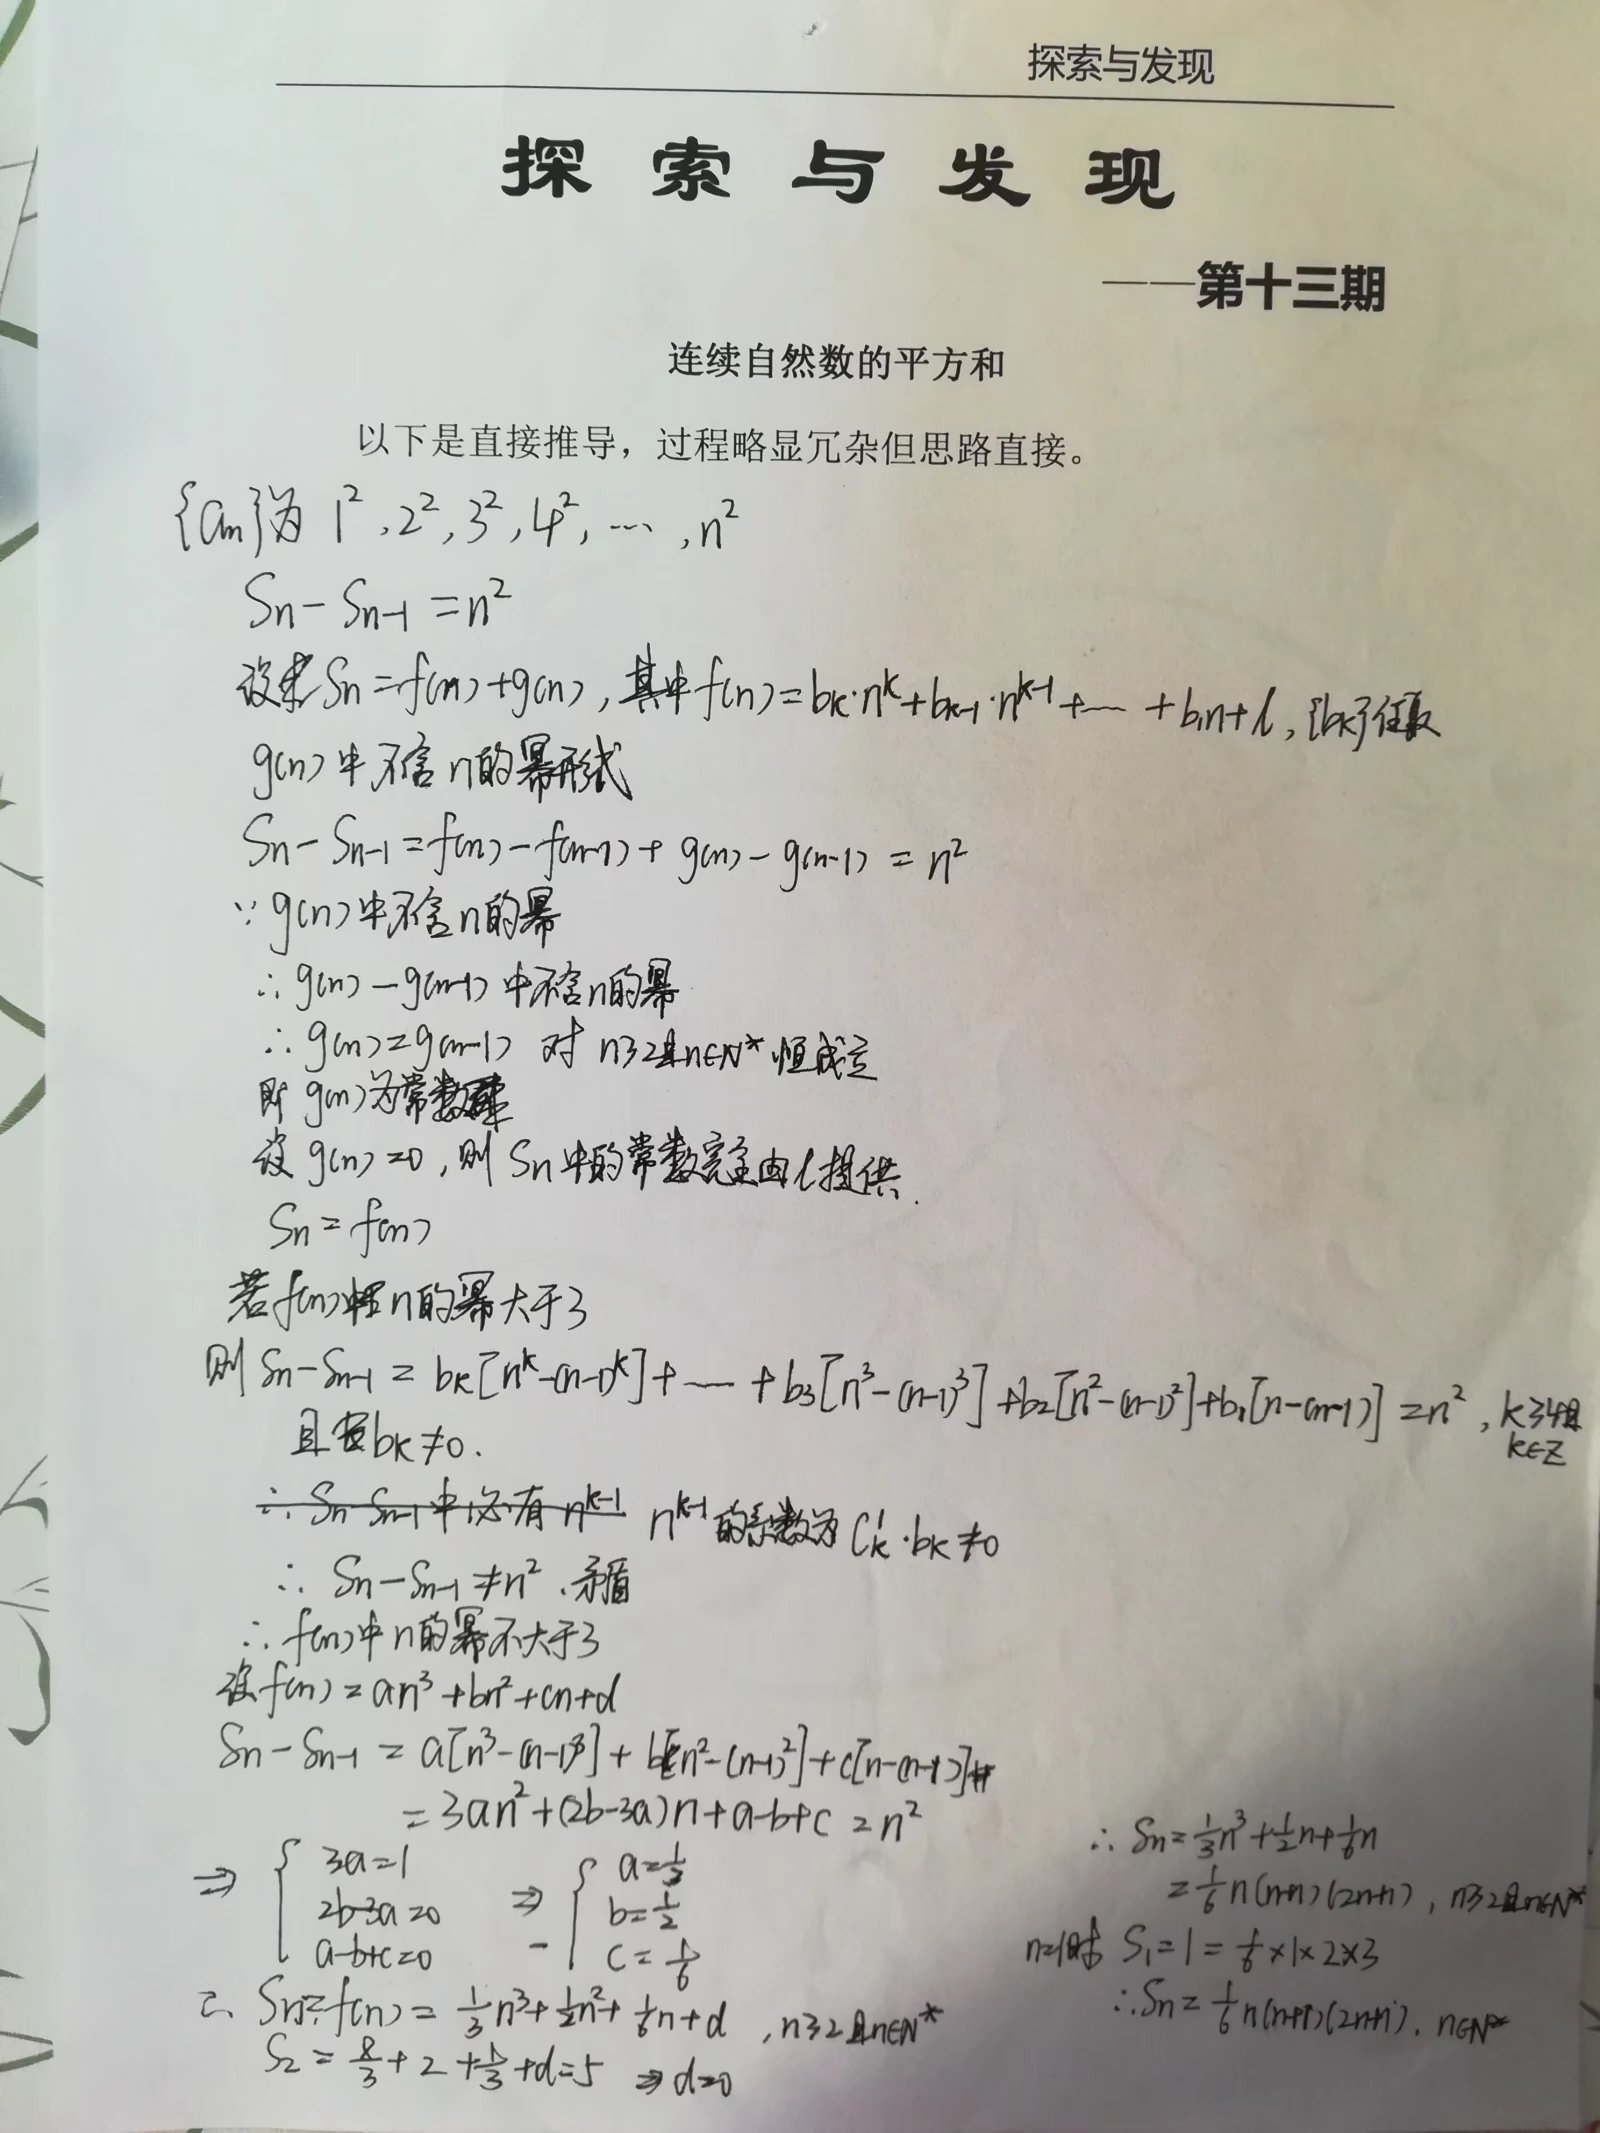 探索与发现
探索与发现
——第十三期
连续自然数的平方和
以下是直接推导，过程略显冗杂但思路直接。
{an}为 1², 2², 3², 4², …, n²
Sn - Sn-1 = n²
设 Sn = f(n) + g(n), 其中 f(n) = bk·n^k + bk-1·n^(k-1) + … + b1n + l, {bk}任取
g(n) 中不含 n 的幂形式
Sn - Sn-1 = f(n) - f(n-1) + g(n) - g(n-1) = n²
∵ g(n) 中不含 n 的幂
∴ g(n) - g(n-1) 中不含 n 的幂
∴ g(n) = g(n-1) 对 n≥2且n∈N* 恒成立
即 g(n) 为常数
设 g(n) = 0, 则 Sn 中的常数完全由 l 提供.
Sn = f(n)
若 f(n) 中 n 的幂大于3
则 Sn - Sn-1 = bk[n^k - (n-1)^k] + … + b3[n³ - (n-1)³] + b2[n² - (n-1)²] + b1[n - (n-1)] = n², k≥4且
k∈Z
且 bk ≠ 0.
∴ Sn - Sn-1 中必有 n^(k-1) n^(k-1) 的系数为 C¹k·bk ≠ 0
∴ Sn - Sn-1 ≠ n². 矛盾
∴ f(n) 中 n 的幂不大于3
设 f(n) = an³ + bn² + cn + d
Sn - Sn-1 = a[n³ - (n-1)³] + b[n² - (n-1)²] + c[n - (n-1)]
= 3an² + (2b-3a)n + a-b+c = n²
⇒ { 3a=1
2b-3a=0
a-b+c=0
⇒ { a=1/3
b=1/2
c=1/6
∴ Sn = f(n) = 1/3n³ + 1/2n² + 1/6n + d , n≥2且n∈N*
S2 = 8/3 + 2 + 1/3 + d = 5 ⇒ d=0
∴ Sn = 1/3n³ + 1/2n + 1/6n
= 1/6 n(n+1)(2n+1), n≥2且n∈N*
n=1时 S1 = 1 = 1/6×1×2×3
∴ Sn = 1/6 n(n+1)(2n+1), n∈N*